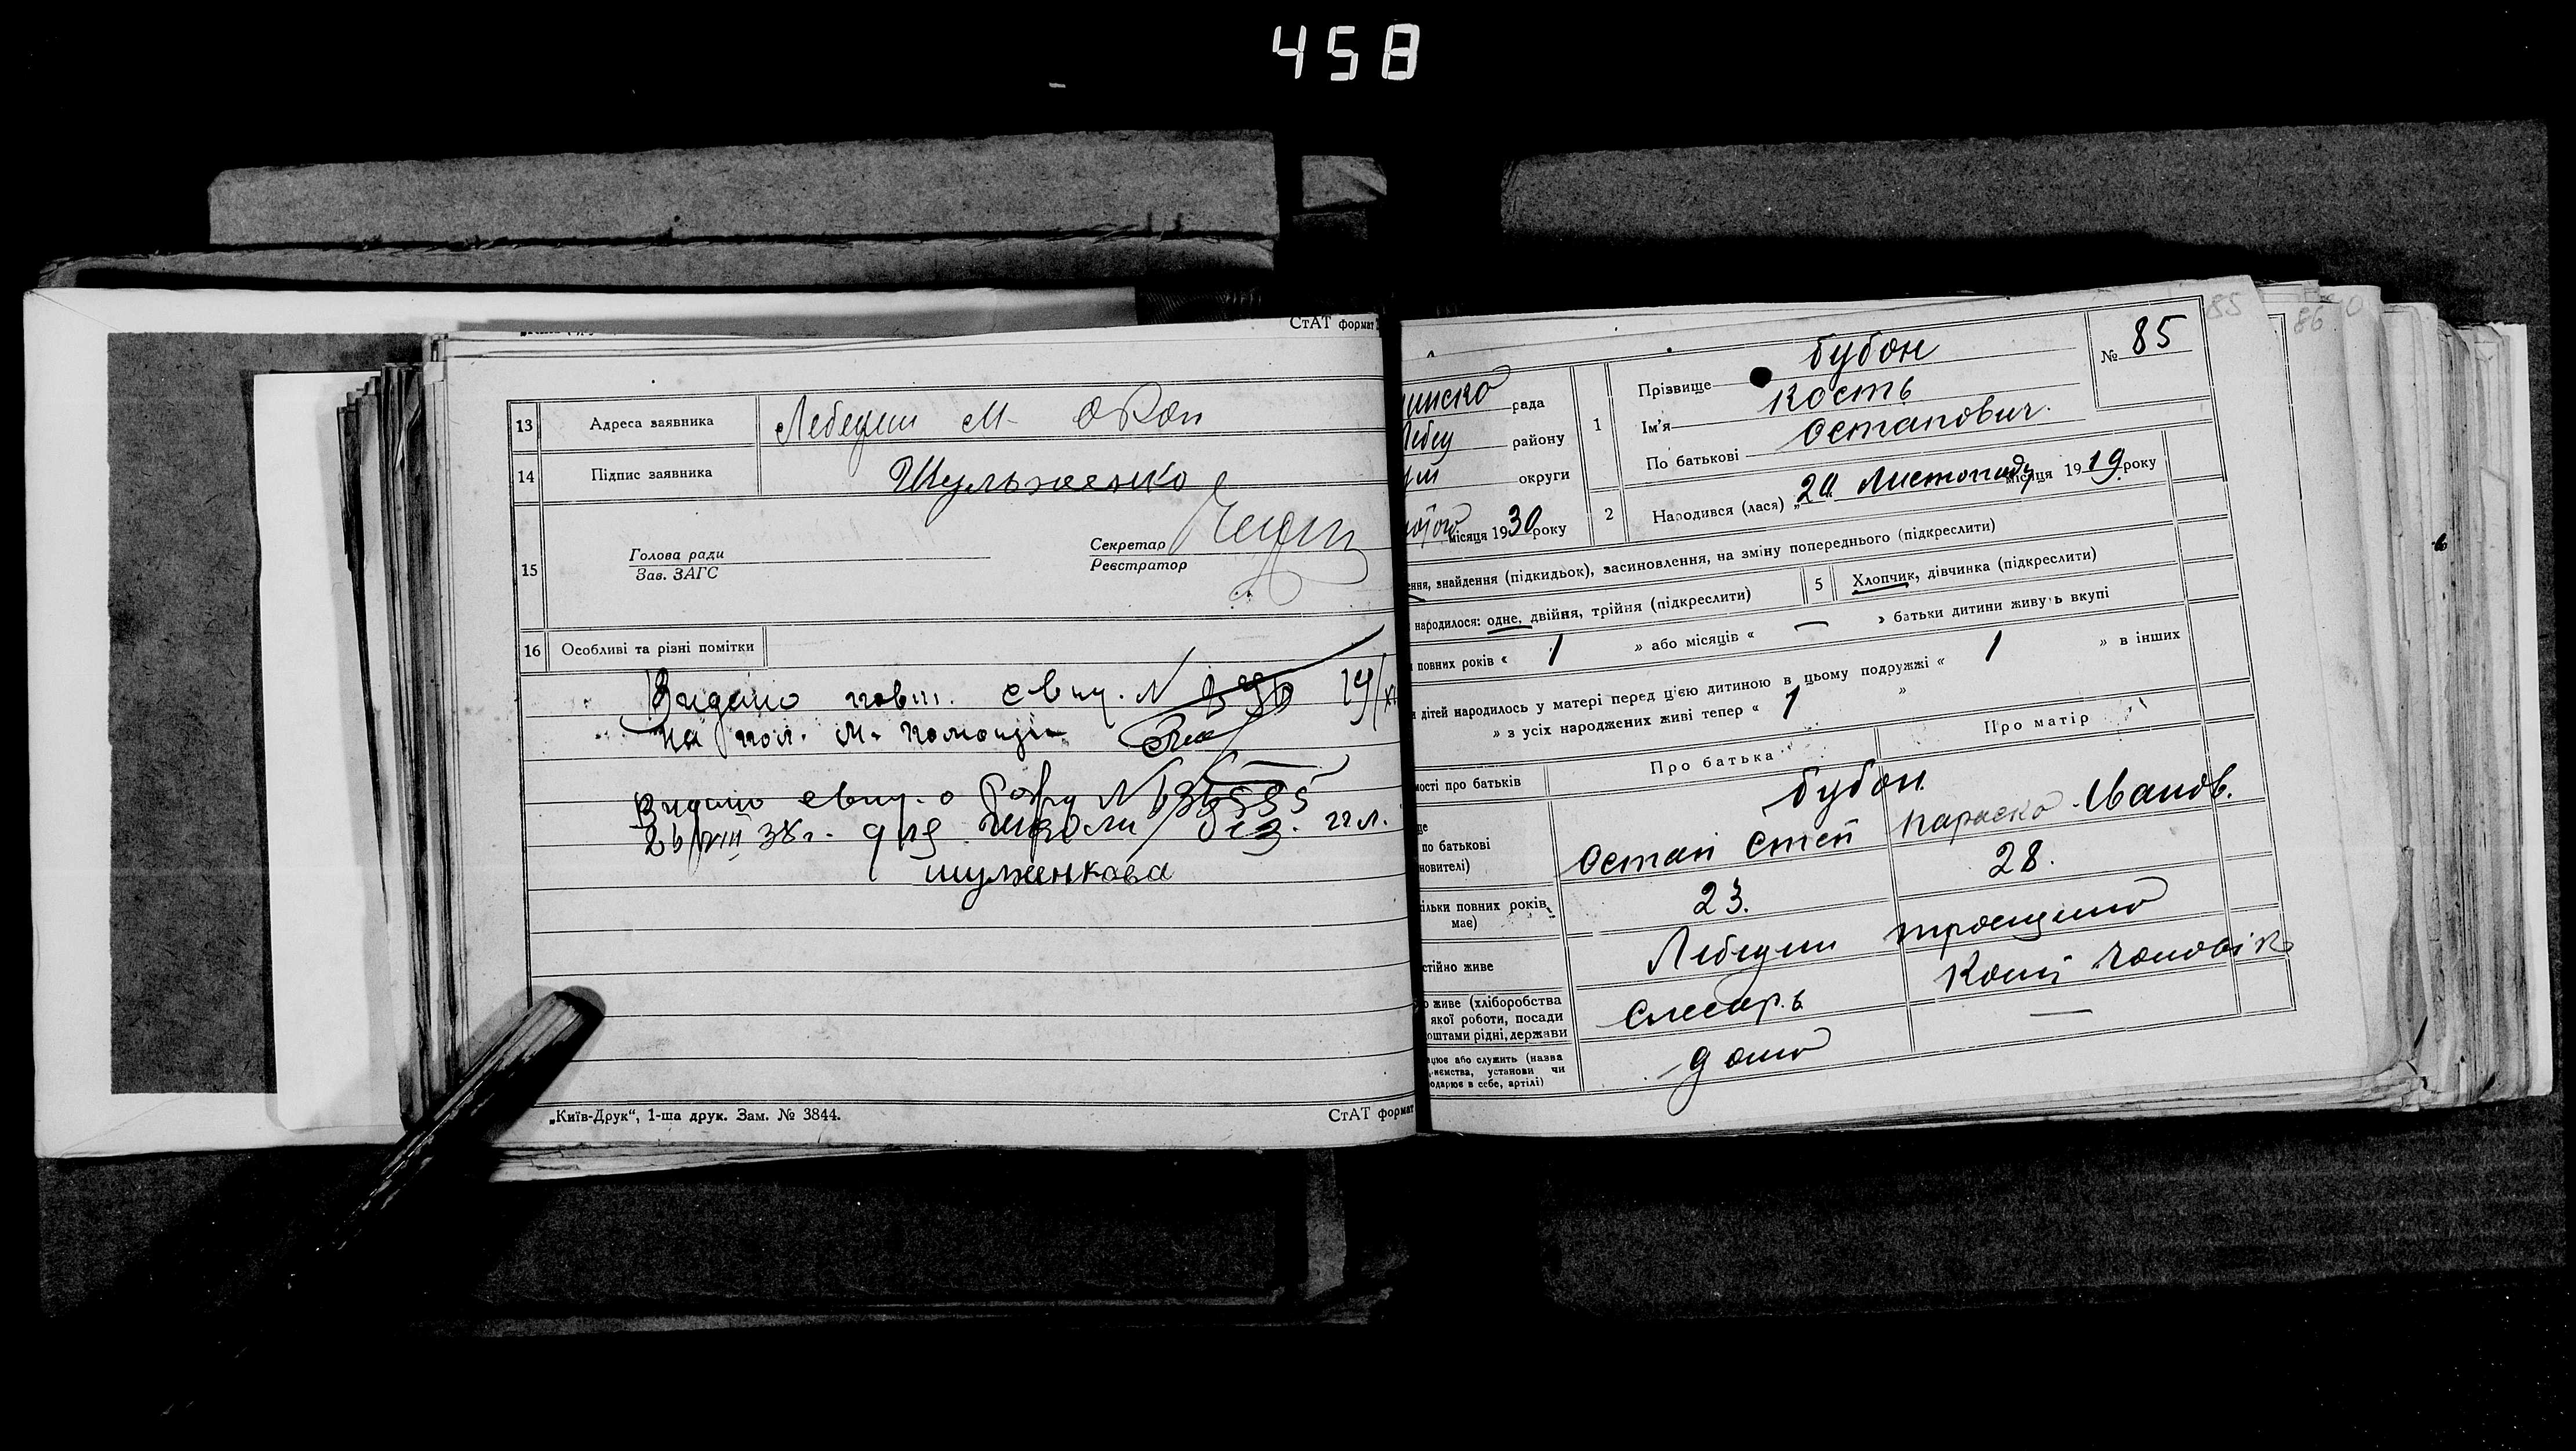 458
СтАТ формат
13 Адреса заявника Лебедин М-
14 Підпис заявника Шульженко
15 Голова ради
Зав. ЗАГС
Секретар
Реєстратор
16 Особливі та різні помітки
Видано повт. свид. N 19/XI
на
Видано свид. о N
26/VIII 38 г. для школи
шулженкова
„Київ-Друк“, 1-ша друк. Зам. № 3844.
СтАТ формат
85
86
рада
району
округи
місяця 1930 року
1 Прізвище бубон
Ім'я Кость
По батькові Остапович.
№ 85
2 Народився (лася) „20. Листопаду місяця 1919 року
ення, знайдення (підкидьок), засиновлення, на зміну попереднього (підкреслити)
народилося: одне, двійня, трійня (підкреслити) 5 Хлопчик, дівчинка (підкреслити)
повних років « 1 » або місяців « — » батьки дитини живуть вкупі
дітей народилось у матері перед цією дитиною в цьому подружжі « 1 » в інших
» з усіх народжених живі тепер « 1 »
мості про батьків Про батька Про матір
бубон
по батькові
новителі)
Остап Степ Параска Іванов.
ільки повних років
має)
23. 28.
стійно живе Лебедин
о живе (хліборобства
якої роботи, посади
оштами рідні, держави
Слесарь
цює або служить (назва
иємства, установи чи
одарює в себе, артілі)
дома —